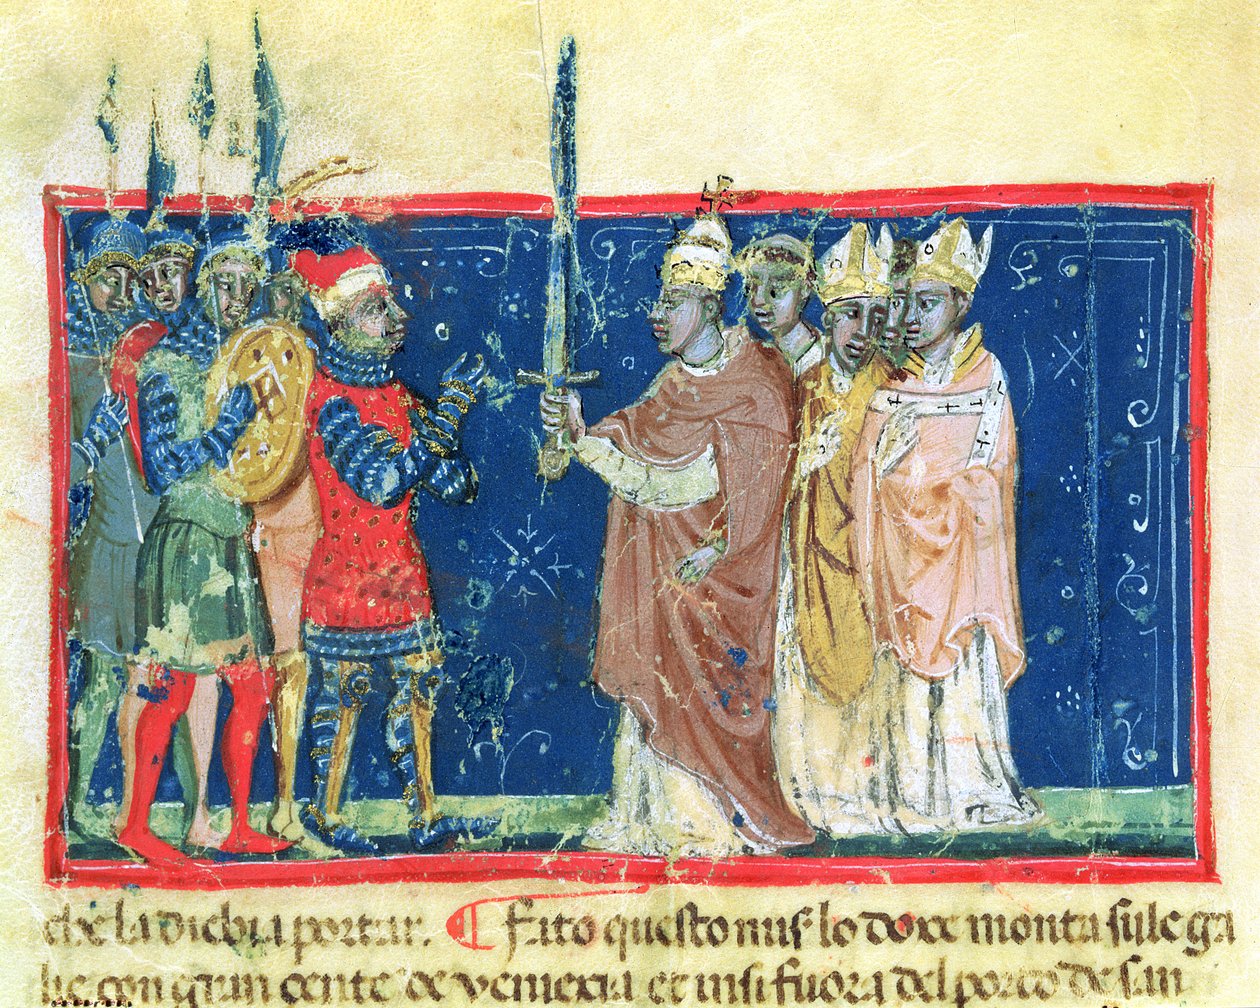 che la diebia portar. ¶ Fato questo mis lo doxe monta su le ga
lie con gran çente de veniexia et insi fuora del porto de san